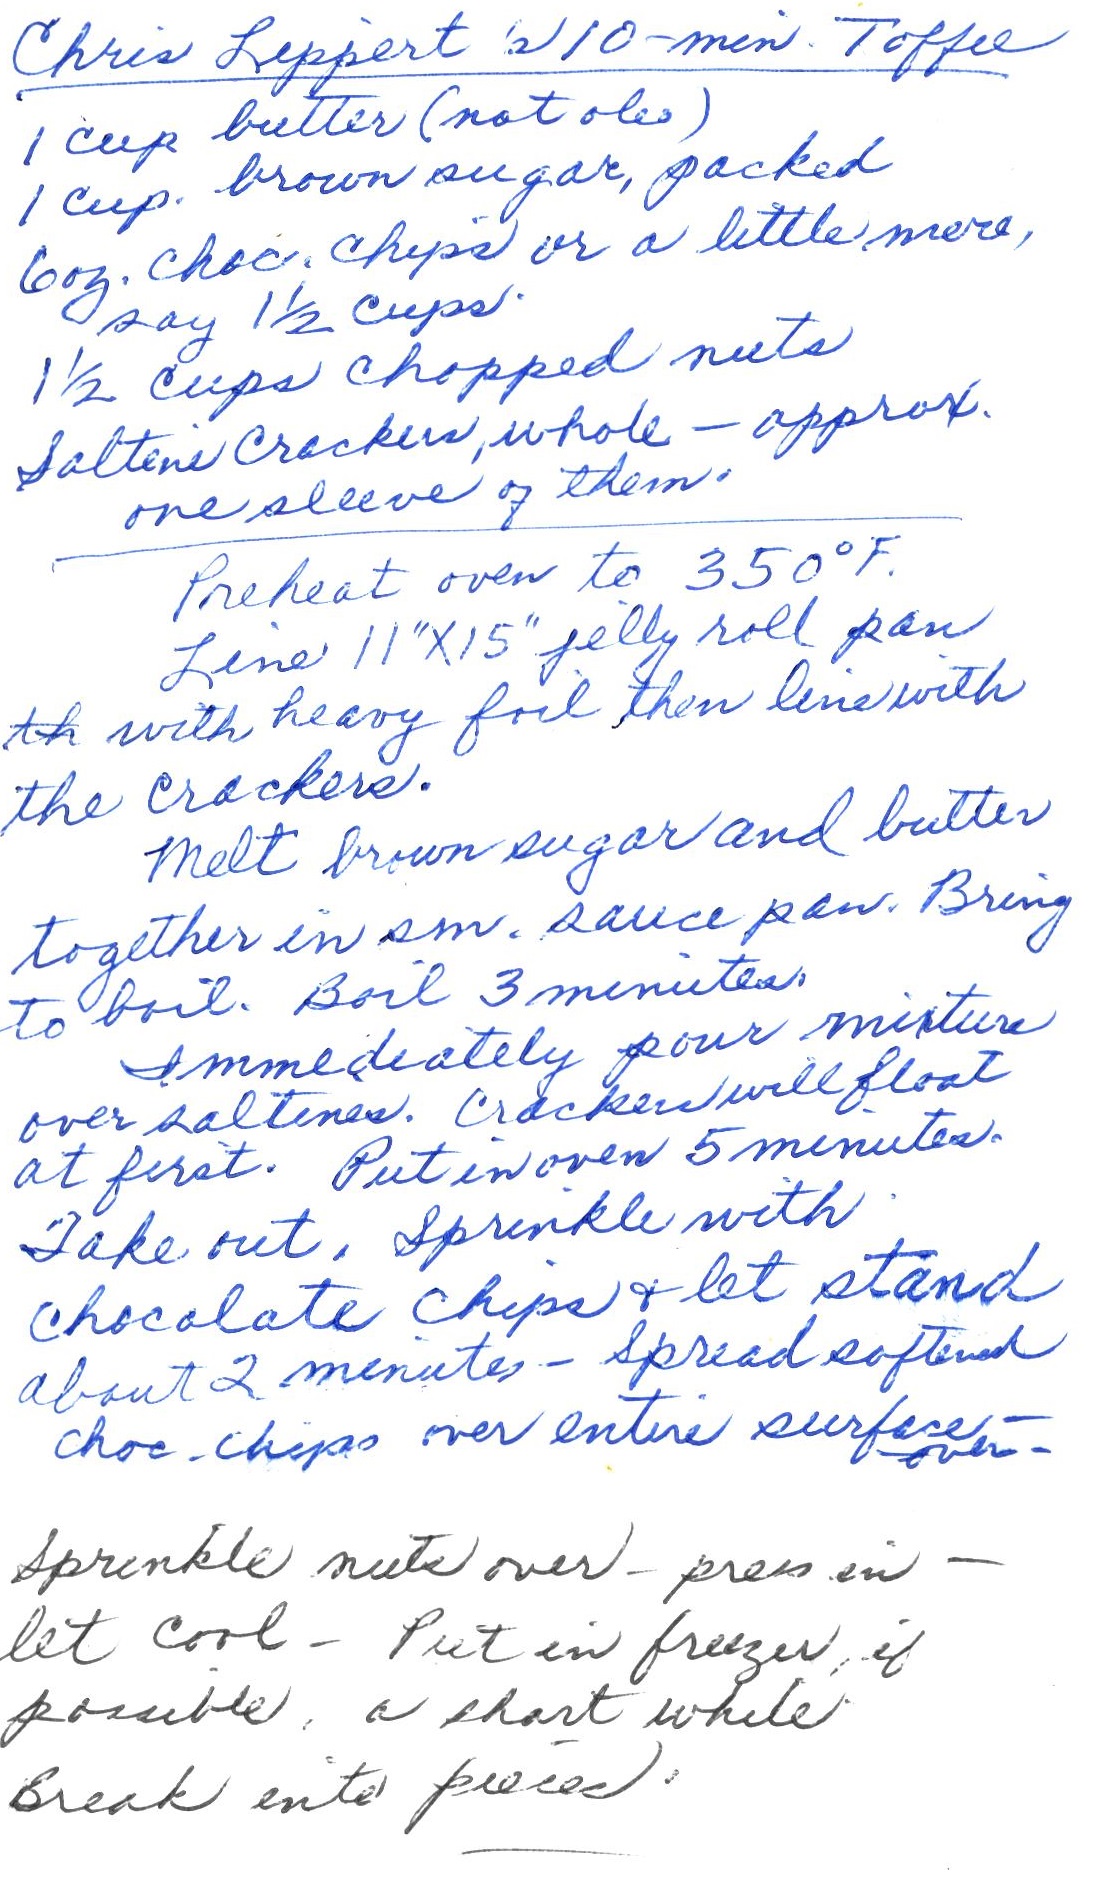 Chris Leppert's 10-min. Toffee
1 cup butter (not oleo)
1 cup. brown sugar, packed
6 oz. choc. chips or a little more,
say 1 1/2 cups.
1 1/2 cups chopped nuts
Saltine Crackers, whole – approx.
one sleeve of them.
Preheat oven to 350°F.
Line 11"X15" jelly roll pan
th with heavy foil then line with
the crackers.
Melt brown sugar and butter
together in sm. sauce pan. Bring
to boil. Boil 3 minutes.
Immediately pour mixture
over saltines. Crackers will float
at first. Put in oven 5 minutes.
Take out. Sprinkle with
chocolate chips & let stand
about 2 minutes – Spread softened
choc. chips over entire surface –
over –
Sprinkle nuts over – press in –
let cool – Put in freezer, if
possible, a short while.
Break into pieces.